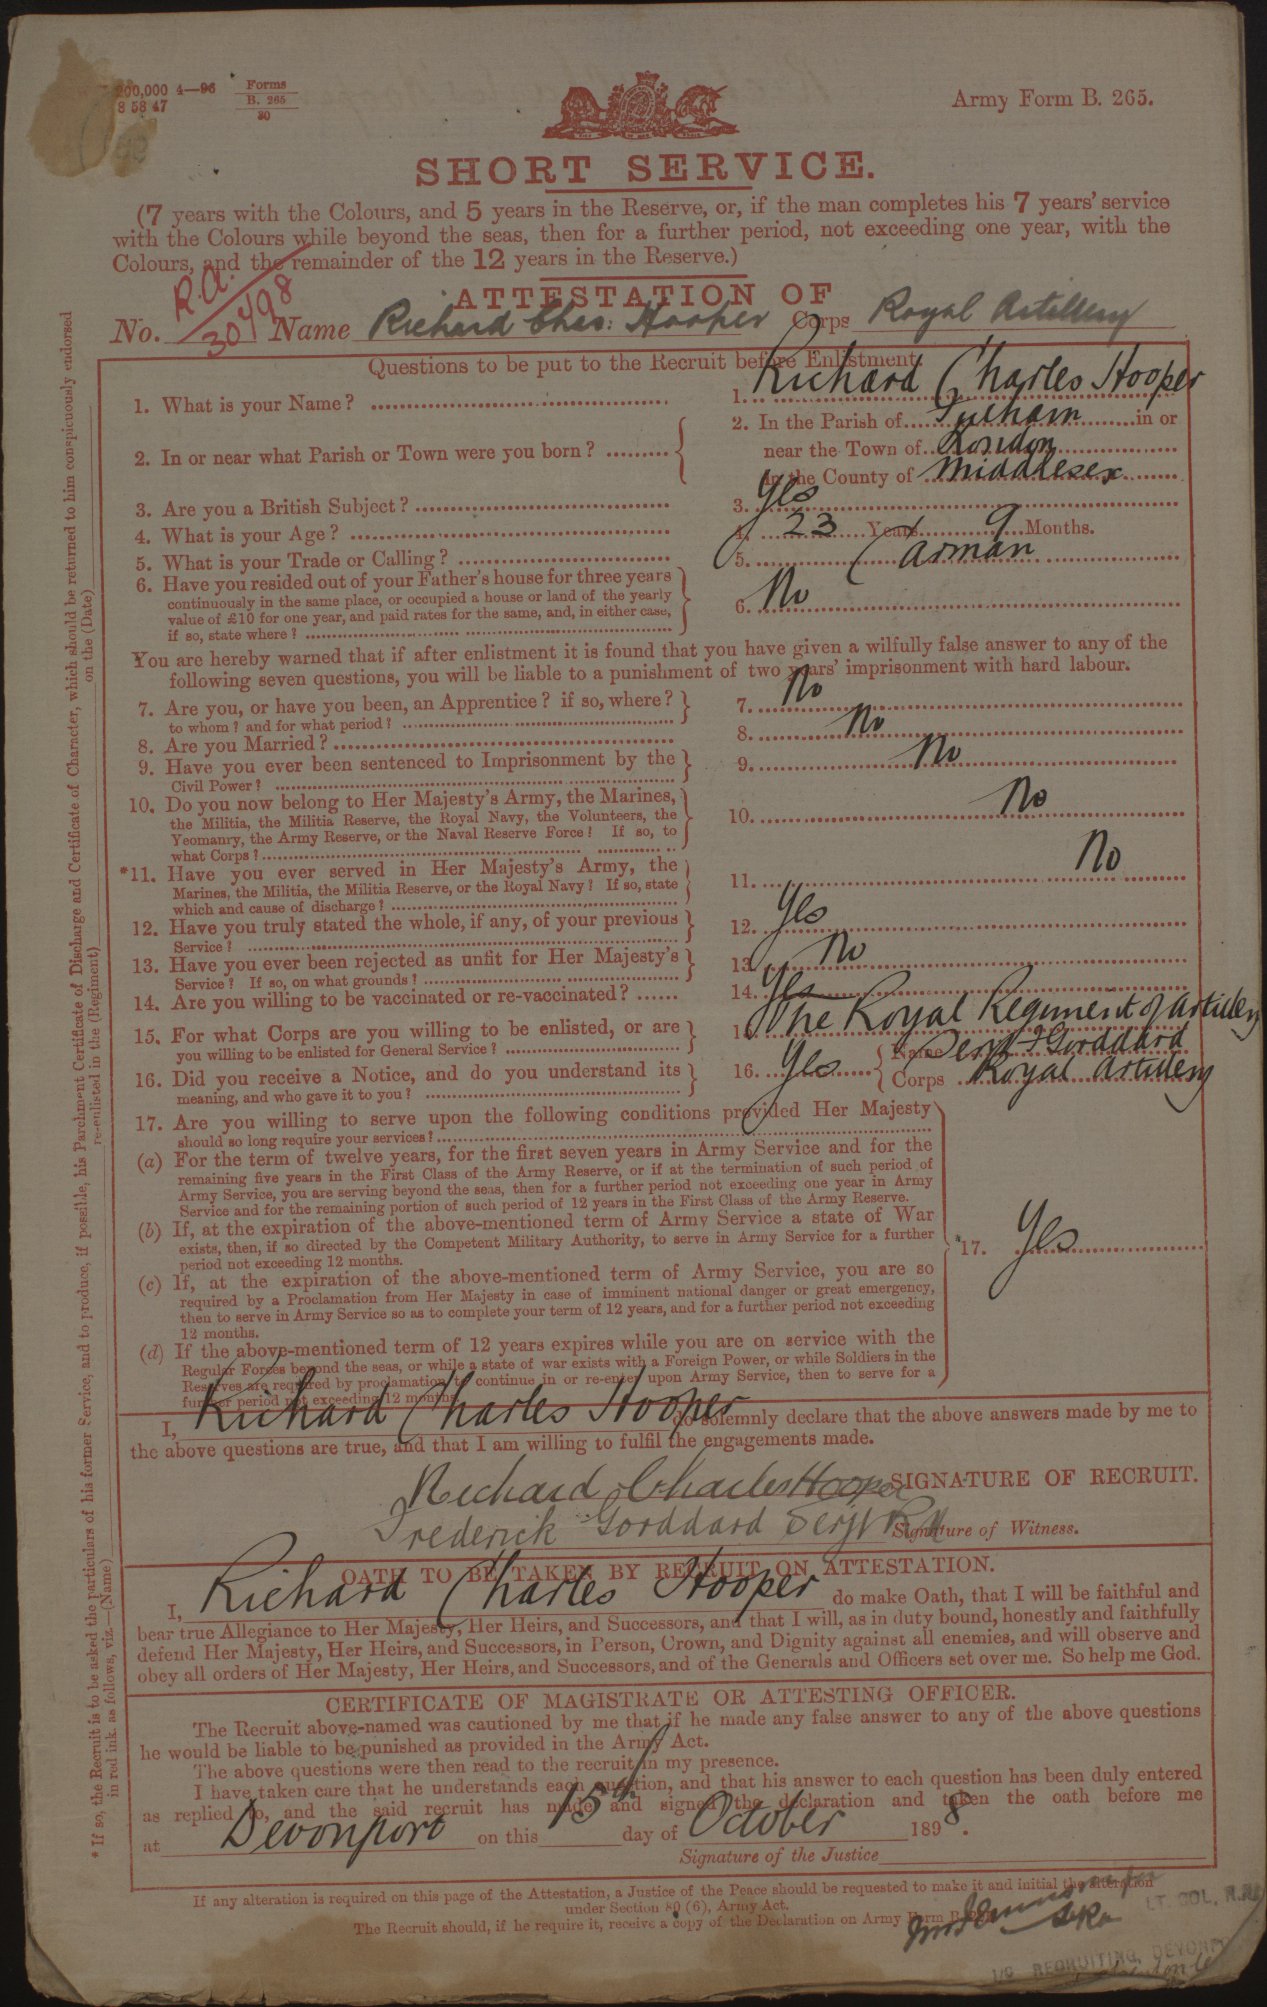 200,000 4—96 Forms B. 265 30
8 58 47
Army Form B. 265.
SHORT SERVICE.
(7 years with the Colours, and 5 years in the Reserve, or, if the man completes his 7 years' service
with the Colours while beyond the seas, then for a further period, not exceeding one year, with the
Colours, and the remainder of the 12 years in the Reserve.)
ATTESTATION OF
No. R.A. 30498 Name Richard Chas: Hooper Corps Royal Artillery
Questions to be put to the Recruit before Enlistment.
1. What is your Name? 1. Richard Charles Hooper
2. In or near what Parish or Town were you born? 2. In the Parish of Fulham in or
near the Town of London
in the County of Middlesex
3. Are you a British Subject? 3. Yes
4. What is your Age? 4. 23 Years 9 Months.
5. What is your Trade or Calling? 5. Carman
6. Have you resided out of your Father's house for three years
continuously in the same place, or occupied a house or land of the yearly
value of £10 for one year, and paid rates for the same, and, in either case,
if so, state where? 6. No
You are hereby warned that if after enlistment it is found that you have given a wilfully false answer to any of the
following seven questions, you will be liable to a punishment of two years' imprisonment with hard labour.
7. Are you, or have you been, an Apprentice? if so, where?
to whom? and for what period? 7. No
8. Are you Married? 8. No
9. Have you ever been sentenced to Imprisonment by the
Civil Power? 9. No
10. Do you now belong to Her Majesty's Army, the Marines,
the Militia, the Militia Reserve, the Royal Navy, the Volunteers, the
Yeomanry, the Army Reserve, or the Naval Reserve Force? If so, to
what Corps? 10. No
*11. Have you ever served in Her Majesty's Army, the
Marines, the Militia, the Militia Reserve, or the Royal Navy? If so, state
which and cause of discharge? 11. No
12. Have you truly stated the whole, if any, of your previous
Service? 12. Yes
13. Have you ever been rejected as unfit for Her Majesty's
Service? If so, on what grounds? 13. No
14. Are you willing to be vaccinated or re-vaccinated? 14. Yes
15. For what Corps are you willing to be enlisted, or are
you willing to be enlisted for General Service? 15. The Royal Regiment of Artillery
16. Did you receive a Notice, and do you understand its
meaning, and who gave it to you? 16. Yes Name Sergt F Gorddard
Corps Royal Artillery
17. Are you willing to serve upon the following conditions provided Her Majesty
should so long require your services?
(a) For the term of twelve years, for the first seven years in Army Service and for the
remaining five years in the First Class of the Army Reserve, or if at the termination of such period of
Army Service, you are serving beyond the seas, then for a further period not exceeding one year in Army
Service and for the remaining portion of such period of 12 years in the First Class of the Army Reserve.
(b) If, at the expiration of the above-mentioned term of Army Service a state of War
exists, then, if so directed by the Competent Military Authority, to serve in Army Service for a further
period not exceeding 12 months.
*17. Yes
(c) If, at the expiration of the above-mentioned term of Army Service, you are so
required by a Proclamation from Her Majesty in case of imminent national danger or great emergency,
then to serve in Army Service so as to complete your term of 12 years, and for a further period not exceeding
12 months.
(d) If the above-mentioned term of 12 years expires while you are on service with the
Regular Forces beyond the seas, or while a state of war exists with a Foreign Power, or while Soldiers in the
Reserves are required by proclamation to continue in or re-enter upon Army Service, then to serve for a
further period not exceeding 12 months.
I, Richard Charles Hooper do solemnly declare that the above answers made by me to
the above questions are true, and that I am willing to fulfil the engagements made.
Richard Charles Hooper SIGNATURE OF RECRUIT.
Frederick Gorddard Sergt RA Signature of Witness.
OATH TO BE TAKEN BY RECRUIT ON ATTESTATION.
I, Richard Charles Hooper do make Oath, that I will be faithful and
bear true Allegiance to Her Majesty, Her Heirs, and Successors, and that I will, as in duty bound, honestly and faithfully
defend Her Majesty, Her Heirs, and Successors, in Person, Crown, and Dignity against all enemies, and will observe and
obey all orders of Her Majesty, Her Heirs, and Successors, and of the Generals and Officers set over me. So help me God.
CERTIFICATE OF MAGISTRATE OR ATTESTING OFFICER.
The Recruit above-named was cautioned by me that if he made any false answer to any of the above questions
he would be liable to be punished as provided in the Army Act.
The above questions were then read to the recruit in my presence.
I have taken care that he understands each question, and that his answer to each question has been duly entered
as replied to, and the said recruit has made and signed the declaration and taken the oath before me
at Devonport on this 15th day of October 1898.
Signature of the Justice
If any alteration is required on this page of the Attestation, a Justice of the Peace should be requested to make it and initial the alteration
under Section 80 (6), Army Act.
The Recruit should, if he require it, receive a copy of the Declaration on Army Form B.
LT COL. R.A.
I/C RECRUITING, DEVONPO
* If so, the Recruit is to be asked the particulars of his former Service, and to produce, if possible, his Parchment Certificate of Discharge and Certificate of Character, which should be returned to him conspicuously endorsed
in red ink, as follows, viz.—(Name) re-enlisted in the (Regiment) on the (Date)